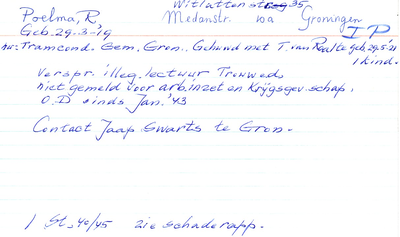 Witlattenstr. 35
Poelma, R. Medanstr. 10a Groningen
Geb. 29-3-'19 IP
nu: Tramcond. Gem. Gron. Gehuwd met T. van Raalte geb. 29.5.'21
1 kind.
Verspr. illeg. lectuur Trouw ed.
niet gemeld voor arb.inzet en Krijgsgev.schap.
O.D sinds Jan. '43
Contact Jaap Swarts te Gron.
/ St. 40/45 zie schaderapp.